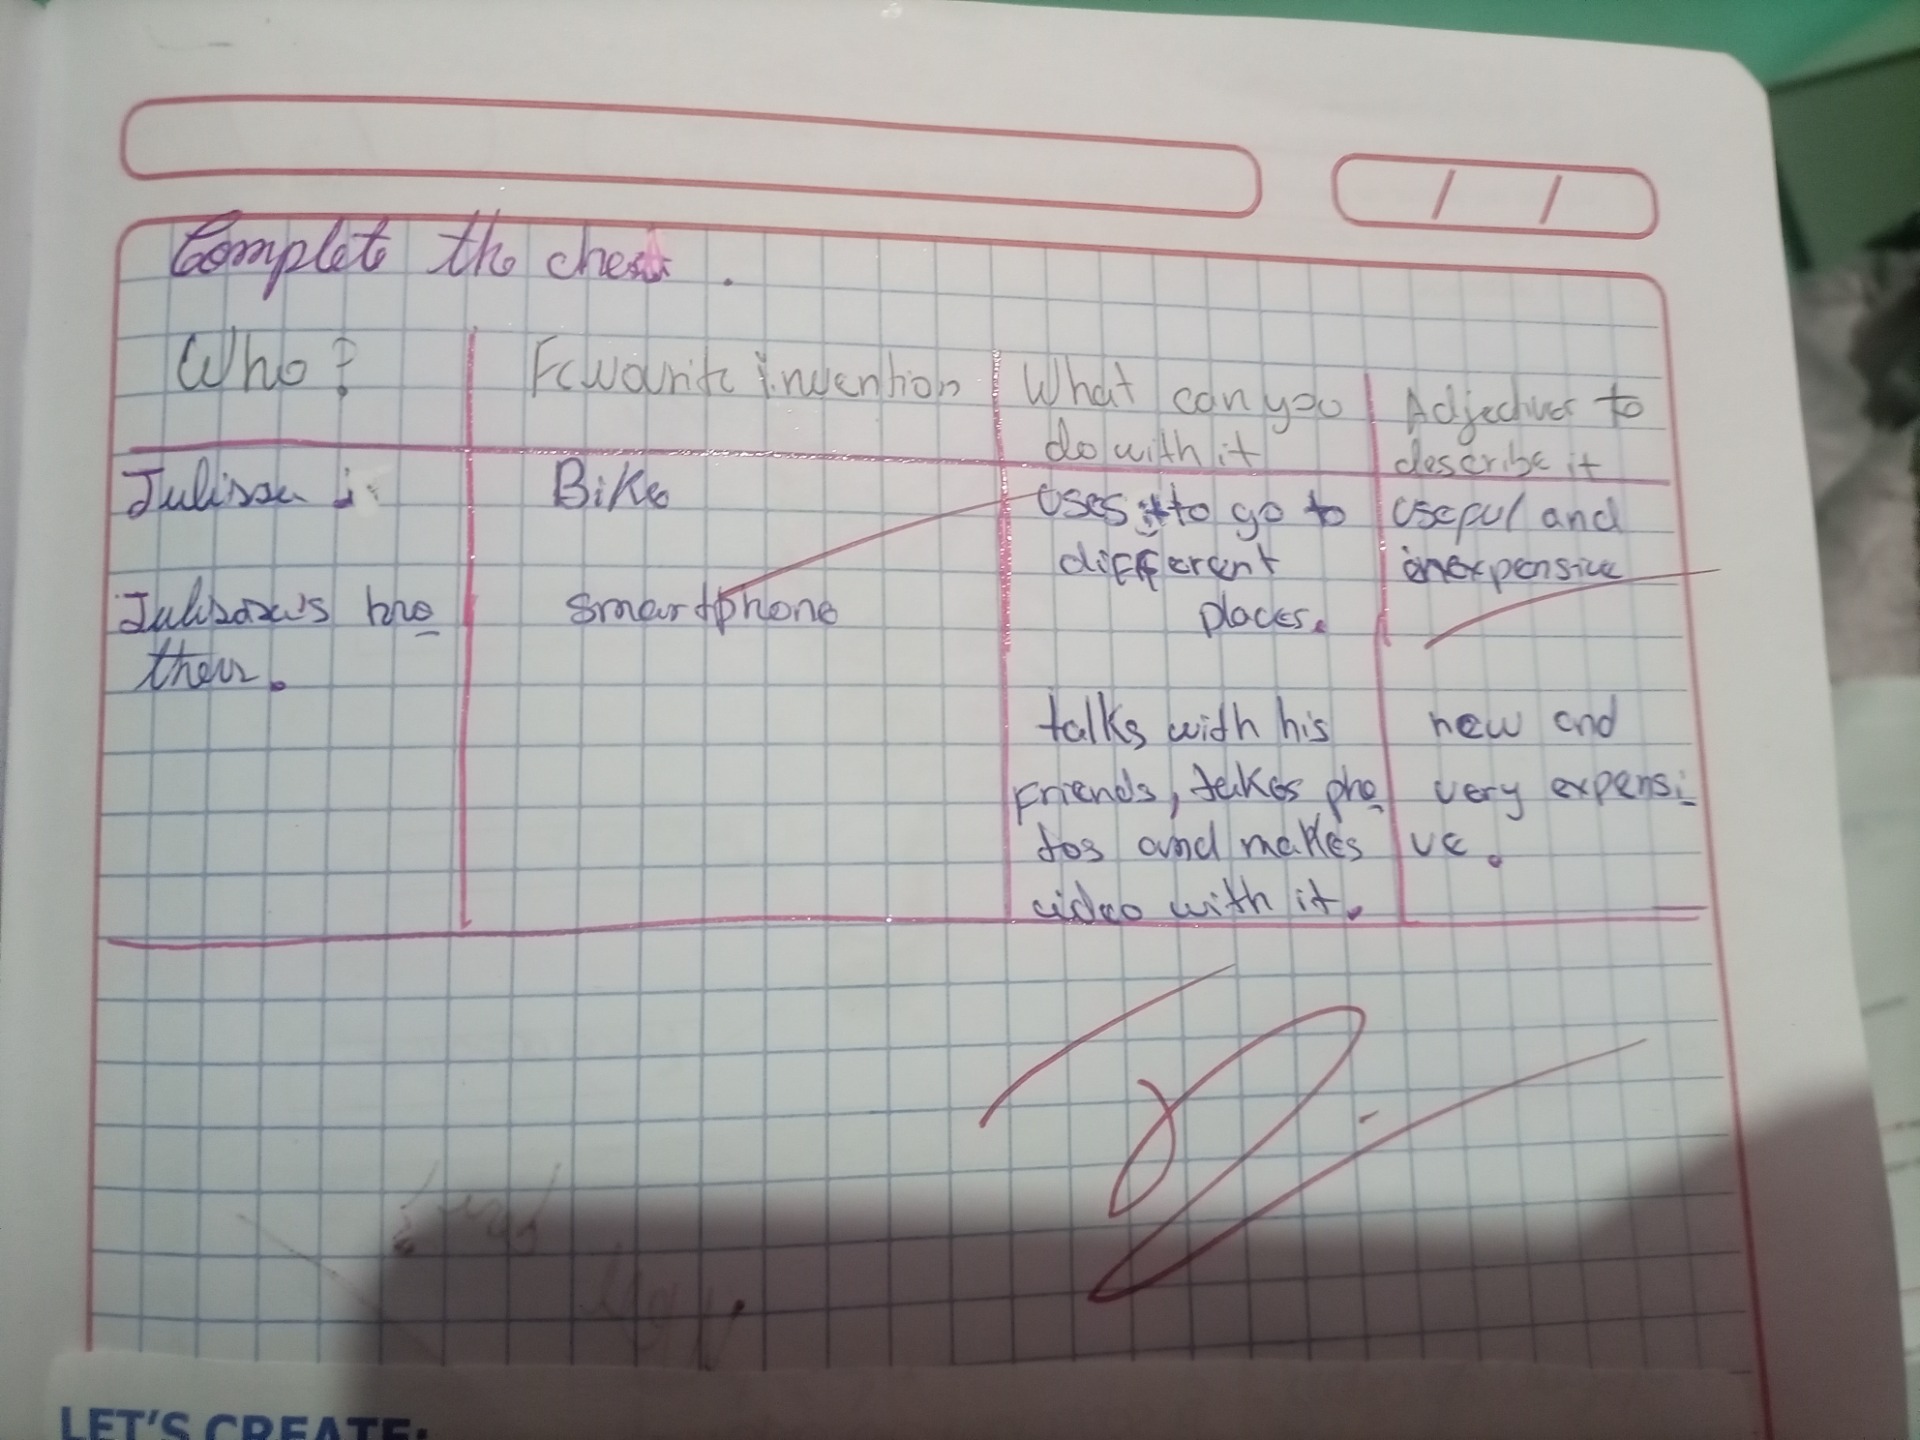 Complete the
Who?
Favourite invention
What can you
do with it
Adjectives to
describe it
Julissa
Bike
uses it to go to
different
places.
useful and
inexpensive
Julissa's bro
ther.
smartphone
talks with his
friends, takes pho
tos and makes
video with it.
new and
very expensi
ve.
LET'S CREATE: